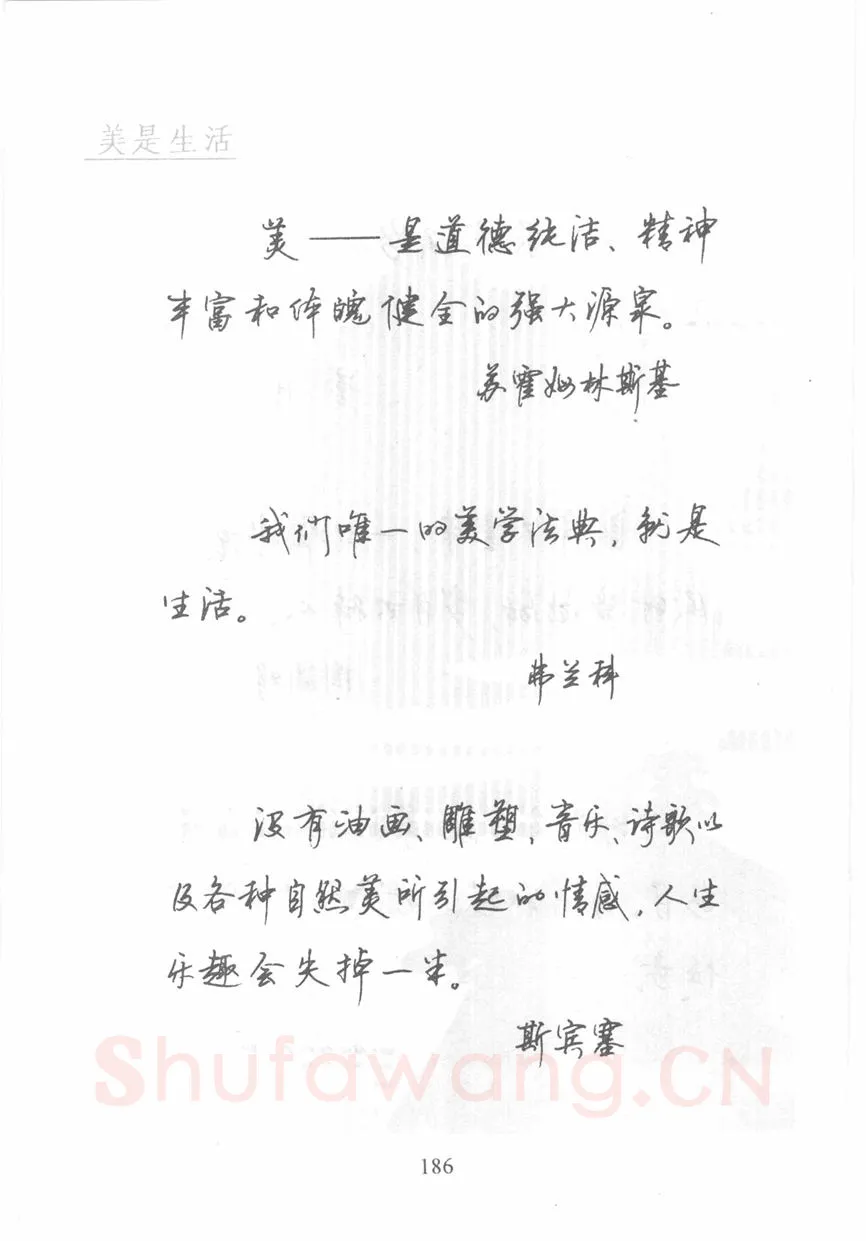 美是生活
美——是道德纯洁、精神
丰富和体魄健全的强大源泉。
苏霍姆林斯基
我们唯一的美学法典,就是
生活。
弗兰科
没有油画、雕塑、音乐、诗歌以
及各种自然美所引起的情感,人生
乐趣会失掉一半。
斯宾塞
Shufawang.CN
186